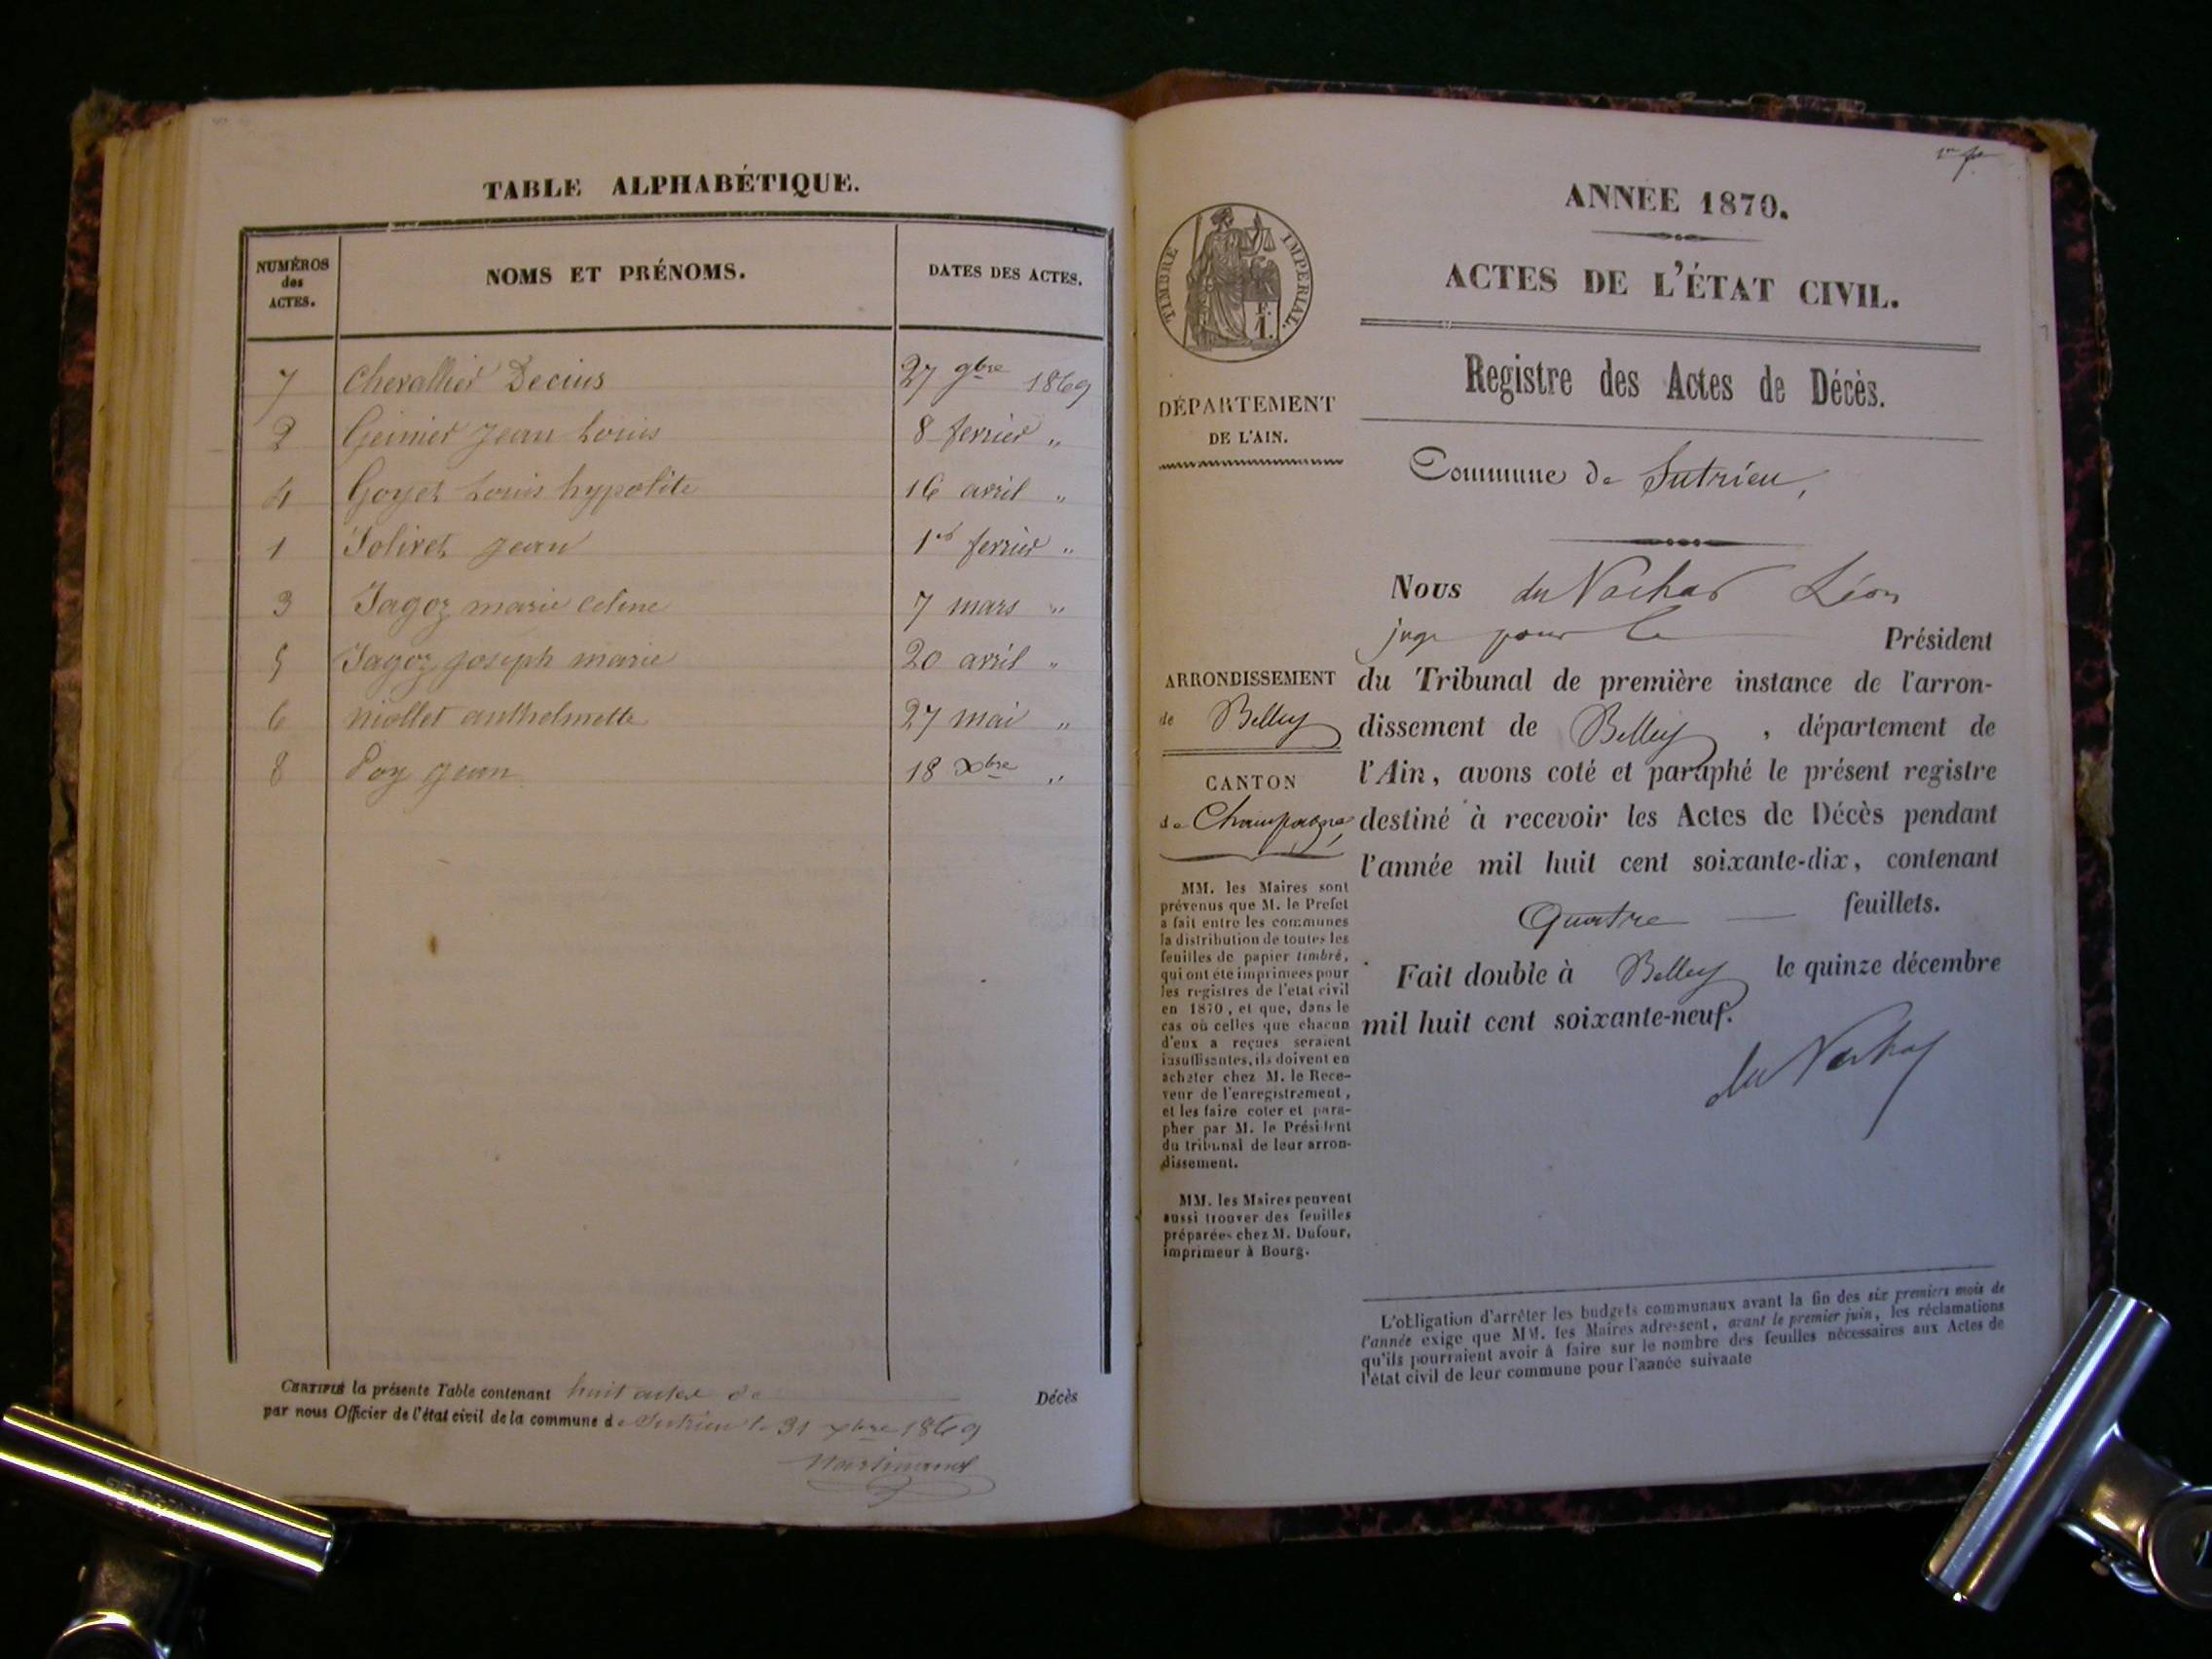 TABLE ALPHABÉTIQUE.
NUMÉROS des ACTES.
NOMS ET PRÉNOMS.
DATES DES ACTES.
7 Chevallier Decius 27 9bre 1869
2 Geinier Jean Louis 8 fevrier "
4 Goyet Louis hypolite 16 avril "
1 Jolivet Jean 1er fevrier "
3 Jagoz marie celine 7 mars "
5 Jagoz Joseph marie 20 avril "
6 niollet anthelmette 27 mai "
8 Poy Jean 18 Xbre "
CERTIFIÉ la présente Table contenant huit actes de Décès
par nous Officier de l'état civil de la commune de Sutrieu le 31 xbre 1869
Martinand
1er f.
ANNÉE 1870.
ACTES DE L'ÉTAT CIVIL.
Registre des Actes de Décès.
Commune de Sutrieu,
TIMBRE IMPÉRIAL.
F. 1.
DÉPARTEMENT
DE L'AIN.
ARRONDISSEMENT
de Belley
CANTON
de Champagne
MM. les Maires sont
prévenus que M. le Préfet
a fait entre les communes
la distribution de toutes les
feuilles de papier timbré,
qui ont été imprimées pour
les registres de l'état civil
en 1870, et que, dans le
cas où celles que chacun
d'eux a reçues seraient
insuffisantes, ils doivent en
acheter chez M. le Rece-
veur de l'enregistrement,
et les faire coter et para-
pher par M. le Président
du tribunal de leur arron-
dissement.
MM. les Maires peuvent
aussi trouver des feuilles
préparées chez M. Dufour,
imprimeur à Bourg.
Nous du Nachat Léon
juge pour le Président
du Tribunal de première instance de l'arron-
dissement de Belley, département de
l'Ain, avons coté et paraphé le présent registre
destiné à recevoir les Actes de Décès pendant
l'année mil huit cent soixante-dix, contenant
Quatre feuillets.
Fait double à Belley le quinze décembre
mil huit cent soixante-neuf.
du Nachat
L'obligation d'arrêter les budgets communaux avant la fin des six premiers mois de
l'année exige que MM. les Maires adressent, avant le premier juin, les réclamations
qu'ils pourraient avoir à faire sur le nombre des feuilles nécessaires aux Actes de
l'état civil de leur commune pour l'année suivante